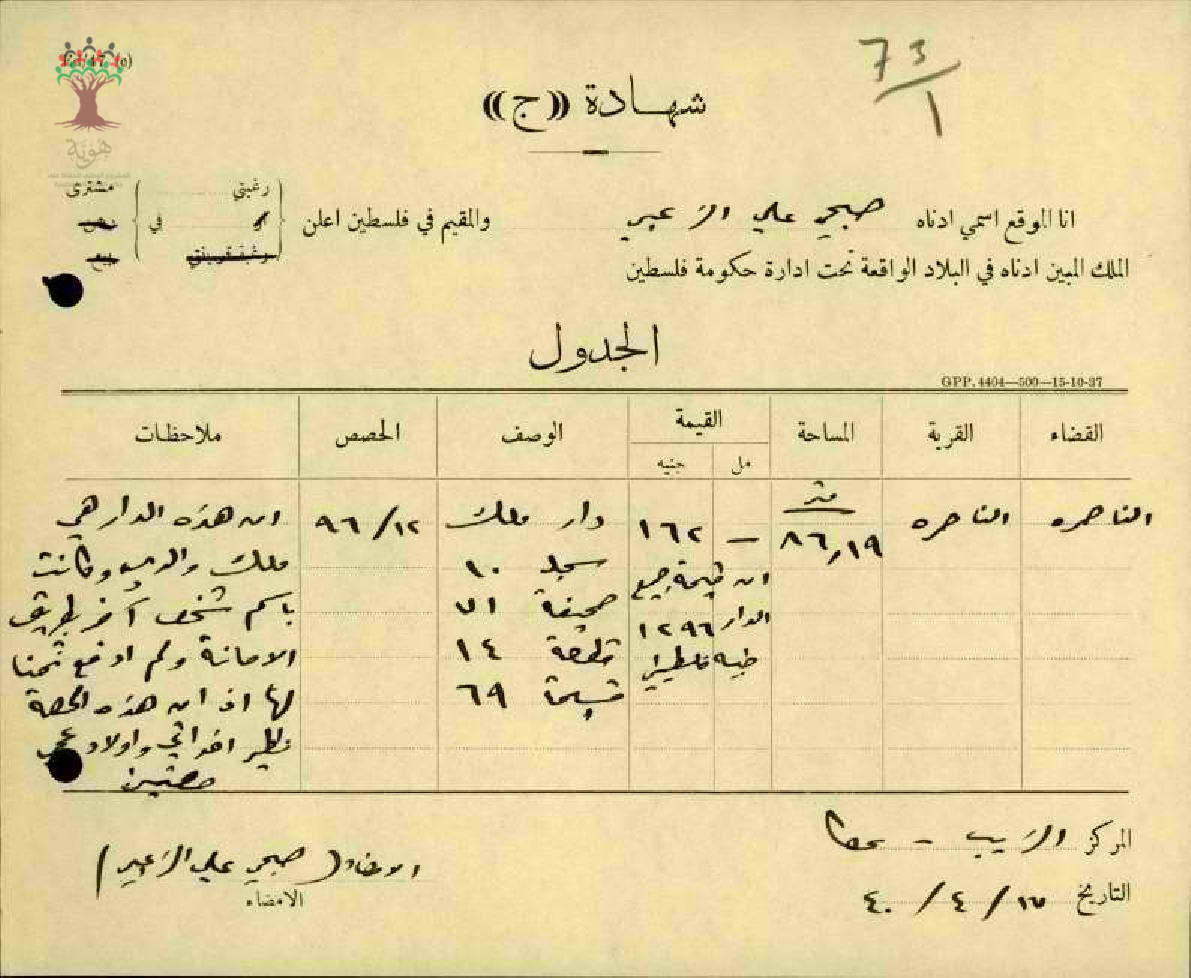 73/1
شهادة ((ج))
هوية
انا الموقع اسمي ادناه صبحي علي الزعبي والمقيم في فلسطين اعلن رغبتي في مشترى
الملك المبين ادناه في البلاد الواقعة تحت ادارة حكومة فلسطين
الجدول
GPP. 4404—500—15-10-37
القضاء القرية المساحة القيمة الوصف الحصص ملاحظات
مل جنيه
الناصره الناصره متر ٨٦,١٩ — ١٦٢ دار ملك ١٢/٩٦ ان هذه الدار هي
ان قيمة جميع سجل ١٠ ملك والدي وكانت
الدار ١٢٩٦ صحيفة ٧١ باسم شخص آخر بطريق
جنيه فلسطيني قطعة ١٤ الامانة ولم ادفع ثمنا
قسيمة ٦٩ لها اذ ان هذه الحصة
نظير اخواتي واولاد
المركز الزيب - عكا
التاريخ ٤/٤٠/
الامضاء (صبحي علي الزعبي)
الامضاء